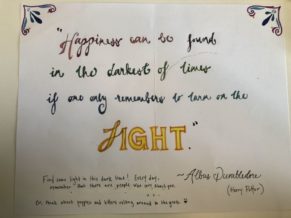 "Happiness can be found
in the darkest of times
if one only remembers to turn on the
LIGHT."
~Albus Dumbledore
(Harry Potter)
Find some light in this dark time! Every day,
remember that there are people who care about you.
Or, think about puppies and kittens rolling around in the grass